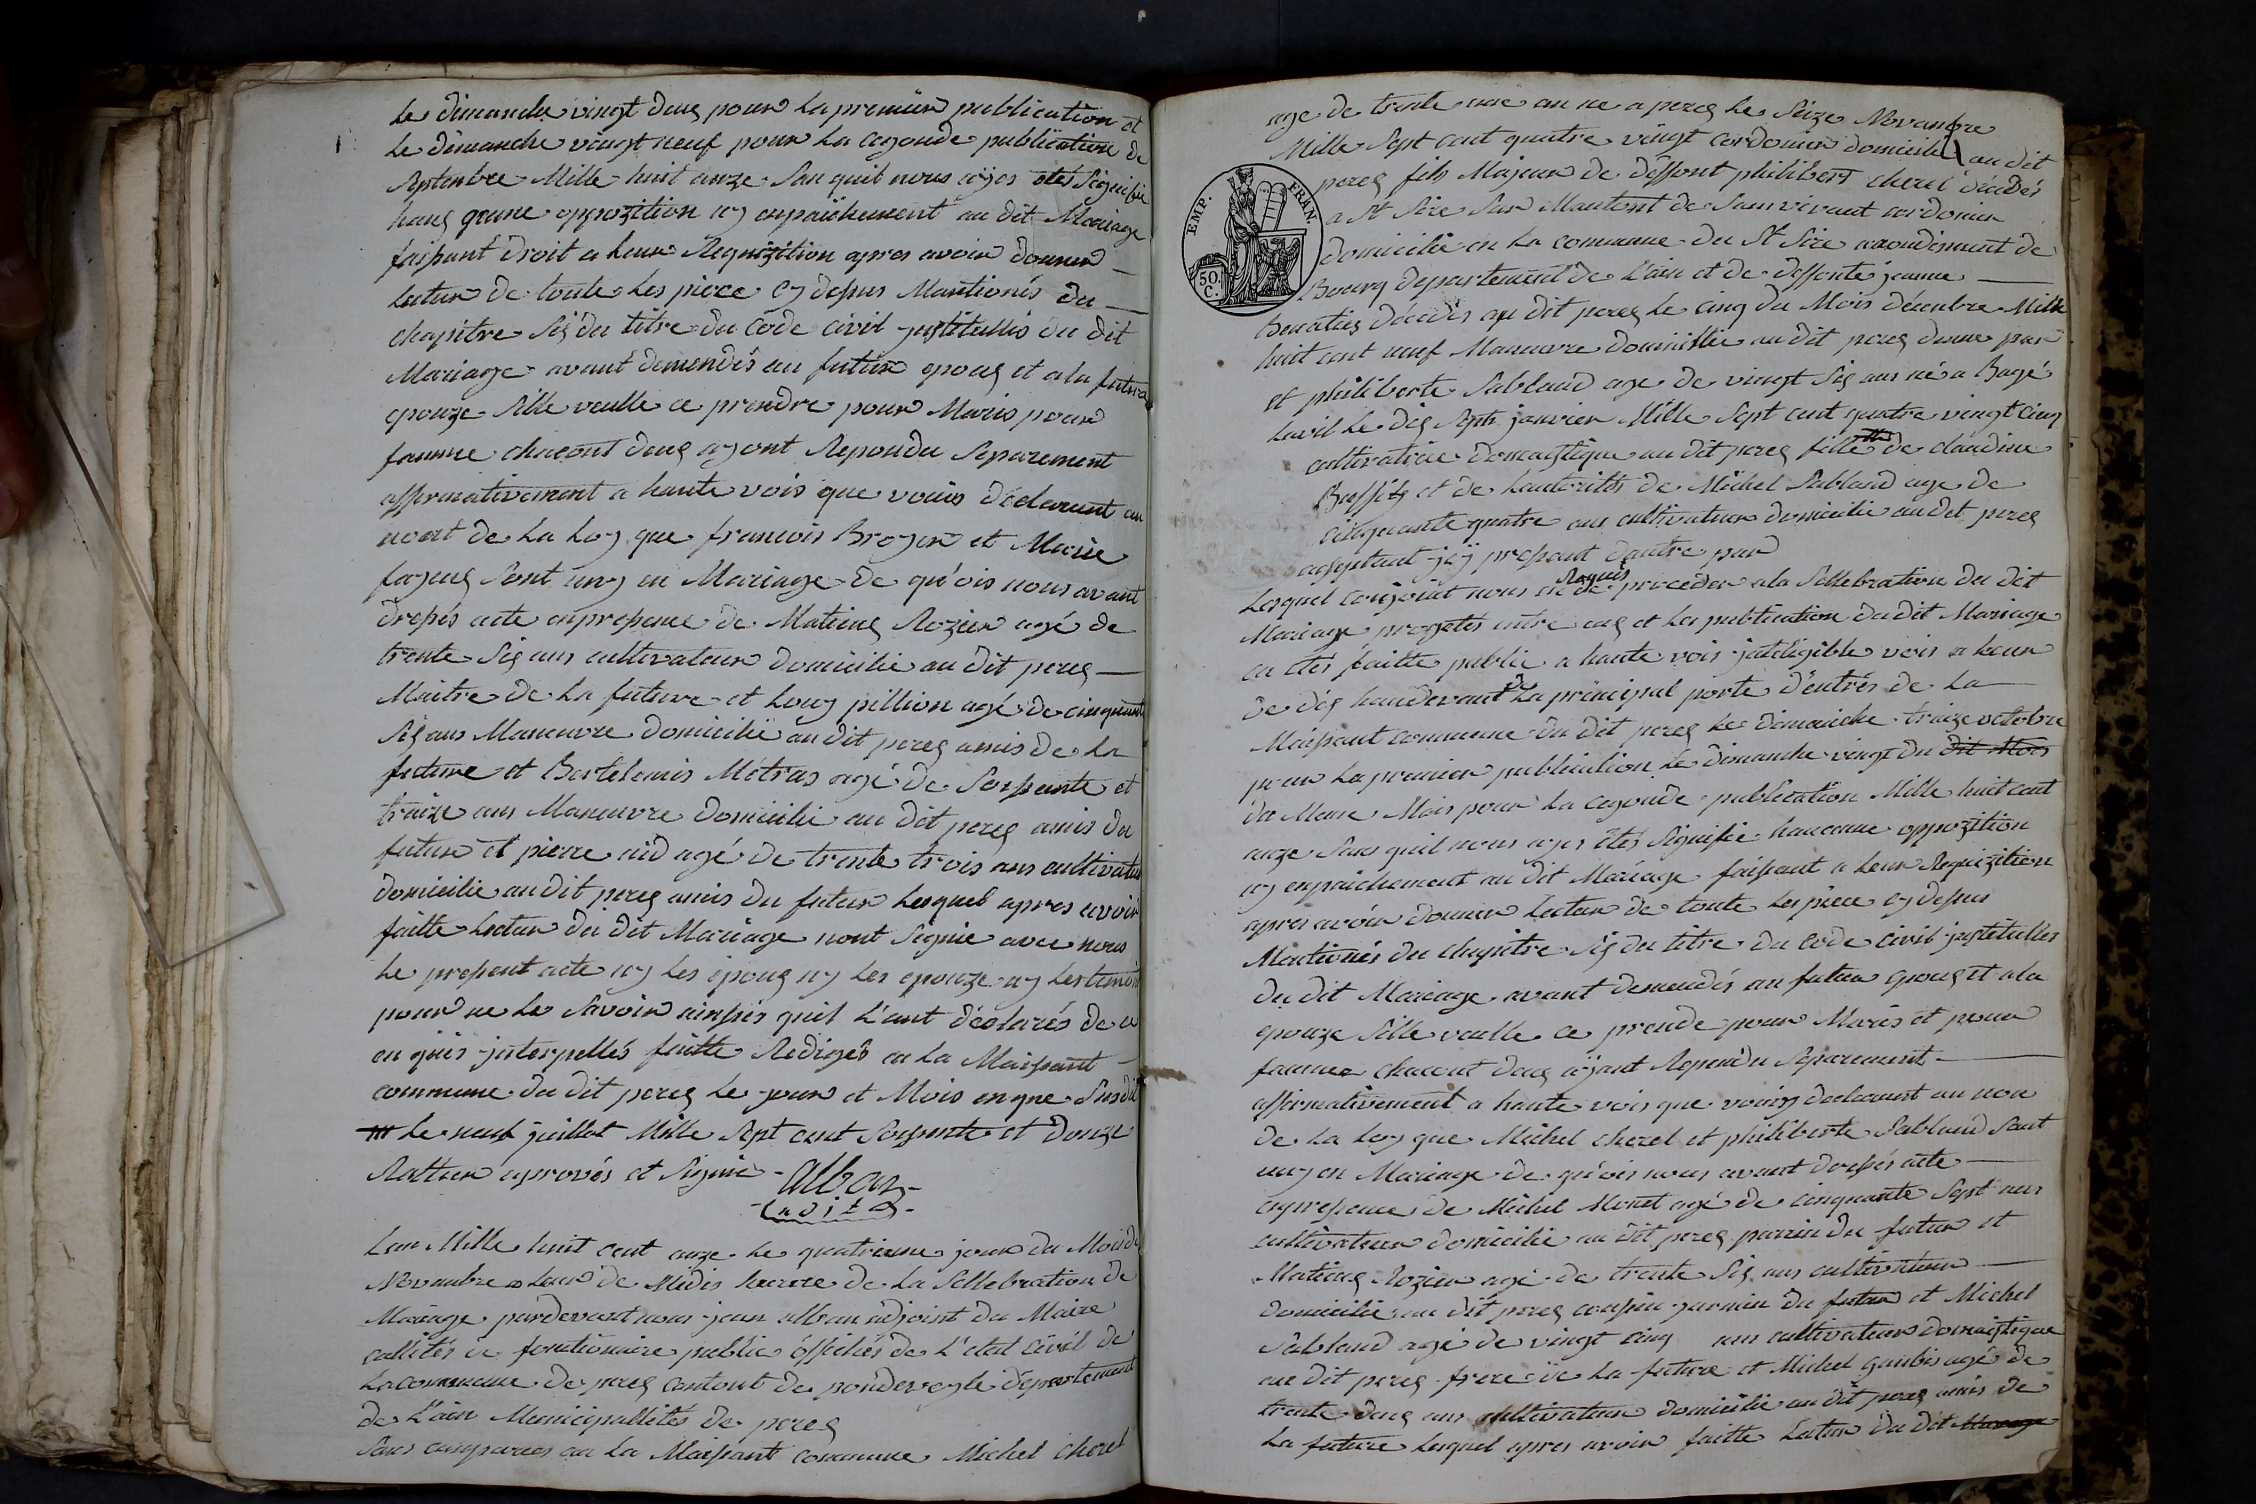 Le dimanche vingt deux pour la premiere publication et
Le dimanche vingt neuf pour La cegonde publication de
Septembre Mille huit onze San quil nous ayes étés Signifie
hauq qeune oppozition ny enpaichement au dit Mariage
faissant droit a leure Requizition apres avoir donner
Lectur de toute Les piece Cy depus Mantionés du
chapitre Siq du titre du Code civil justitullés du dit
Mariage avant demendés au futur epouq et a la future
epouze Sille veulle ce prendre pour Maris pour
famme chacont deuq ayont Repondu Separement
affirmativement a haute vois que vouis déclarant au
nont de La Loy que francois Broyer et Marie
fayeuq Sont uny en Mariage de qu'ois nous avant
drepés acte enpresence de Matieuq Rozier agé de
trente Siq ans cultivateur domicilie au dit pereq
Maitre de La future et Louy pillion agé de cinquante
Siq ans Maneuvre domicilie au dit pereq amis de La
future et Bertelemis Métras agé de Soissante et
traize ans Maneuvre domicilie au dit pereq amis du
futur et pierre nid agé de trente trois ans cultivateur
domicilie au dit pereq amis du futur Lesquel apres avoir
faitte Lectur du dit Mariage nont Signie avec nous
Le present acte ny Les épouq ny Les epouze ny Les temoin
pour ne Le Savoir ainsies quil L'ont déclarés de ce
en quis interpellés faitte Rediges en La Maissont
commune du dit pereq Le jour et Mois enque Susdit
Le neuf juillet Mille Sept cent Soissente et douze
Rature aprovés et Signie
Alban
adjt
Lan Mille huit cent onze Le quatrieme jour du Mois de
Novembre a Leur de Midis de La Sellebration de
Mariage pardevant nous jean alban adjoint du Maire
callités de fonctionaire public éffichés de L'état Civil de
La commune de pereq Cantont de pondeveyle département
de L'ain Municipallités de pereq
Sons comparues en La Maissont commune Michel cherel
age de trente une an ne a pereq Le Seize Novanbre
Mille Sept cent quatre vingt cordonier domicilie au dit
pereq fils Majeur de déffont philibert cherel décédés
a St Sire Sur Mantont de Sonvivant cordonier
domicilie en La commune du St Sire arondisment de
Bourg département de L'ain et de deffonte jeanne
décédés au dit pereq Le cinq du Mois décembre Mille
huit cent neuf Maneuvre domicillie au dit pereq dune par
et philiberte Sabland age de vingt Siq ans né a Bagé
Lavil Le diq Septe janvier Mille Sept cent quatre vingt cinq
cultivatrice domaystique au dit pereq fille de claudine
et de Lautorités de Michel Sabland age de
cinquante quatre ans cultivateur domicilie au dit pereq
aceptant jcy present dautre par
Lesquel conjoint nous on Requis de proceder a la Sellebration du dit
Mariage progetés entre euq et La publication du dit Mariage
on étés faitte public a haute vois jnteligible vois a Leur
de diq haudevant de La principal porte d'entrés de La
Maissont commune du dit pereq Le dimanche traize octobre
pour La premier publication Le dimanche vingt du dit Mois
du Meme Mois pour La cegonde publication Mille huit cent
onze Sans quil nous ayes étés Signifie haucune oppozition
ny enpaichement au dit Mariage faissant a Leur Requizition
apres avoir donner Lectur de toute Les piece Cy depus
Mantionés du Chapitre Siq du titre du Code Civil justitulles
du dit Mariage avant demendés au futur epouq et a La
epouze Sille veulle ce prende pour Maris et pour
famme chacont deuq ayant Repondu Separement
affirmativement a haute vois que vouiy declarant au non
de La Loy que Michel cherel et philiberte Sabland Sont
uny en Mariage de qu'ois nous avant dressés acte
enpresence de Michel Monet agé de cinquante Sept ans
cultivateur domicilie au dit pereq parrin du futur et
Matieuq Rozier agé de trente Siq ans cultivateur
domicilie au dit pereq coussin jarmin du futur et Michel
Sabland agé de vingt cinq ans cultivateur domaistique
au dit pereq frere de La future et Michel Gaubis agé de
trente deuq ans cultivateur domicilie au dit pereq amis de
La future Lesquel apres avoir faitte Lectur du dit Mariage
EMP. FRAN.
50 C.